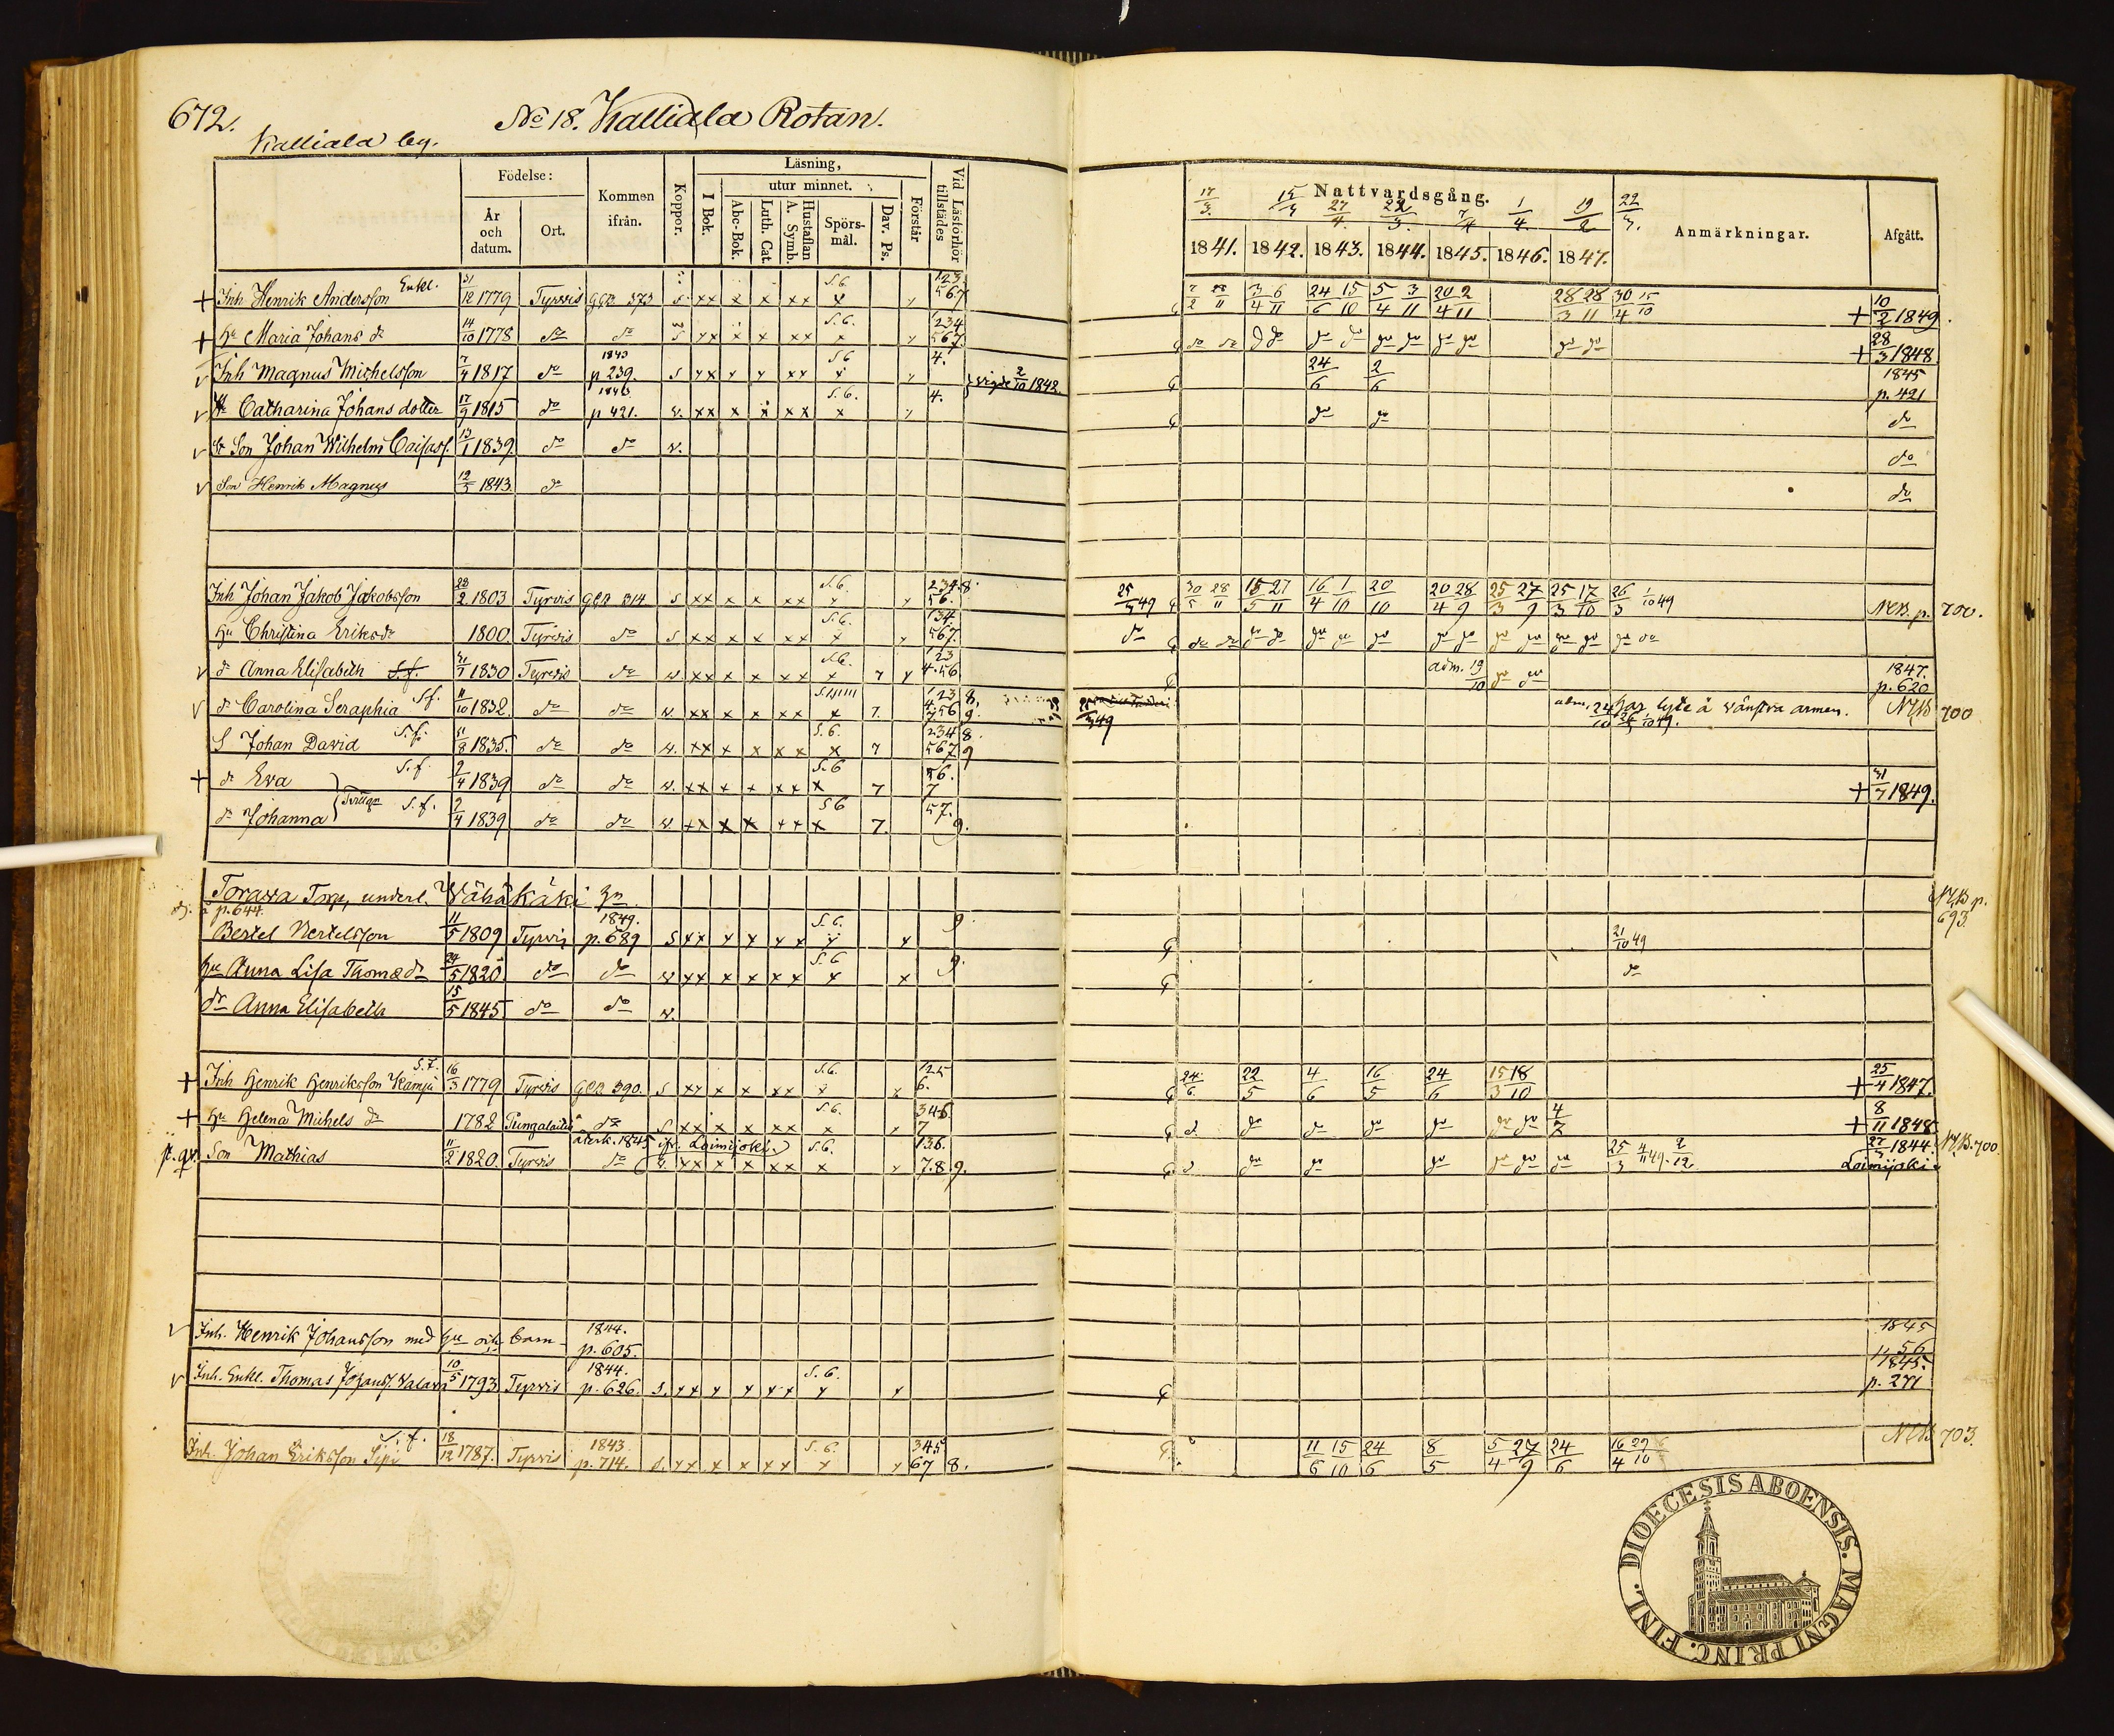 672.
No 18. Kalliala Rotan.
Kalliala by.
Födelse: År och datum. Ort. Kommen ifrån. Koppor. Läsning, I Bok. utur minnet. Abc-Bok. Luth. Cat. A. Symb. Hustaflan Spörsmål. Dav. Ps. Förstår Vid Läsförhör tillstädes
Nattvardsgång. Anmärkningar. Afgått.
17/3. 15/3 27/4. 22/3. 7/4 1/4. 19/2 22/3.
1841. 1842. 1843. 1844. 1845. 1846. 1847.
+ Inh Henrik Andersson Enkl. 31/12 1779 Tyrvis GCB 373 S xx x x xx S.6. x 123 567 24/6 15/10 5/4 3/11 20/4 2/11 28/3 28/11 30/4 15/10 + 10/2 1849.
+ Hu Maria Johans dr 14/10 1778 do do S xx x x xx S.6. x 234 567 do do + 28/3 1848
v Inh Magnus Michelsson 7/4 1817 do 1843 p 239. S xx x x xx S 6 x 4. vigde 2/10 1842. 24/6 2/6 1845 p. 421
v Hu Catharina Johans dotter 17/9 1815 do 1846 p 421. v. xx x x xx S.6. x 4. do do do
v Son Johan Wilhelm 13/1 1839. do do v. do
v Son Henrik Magnus 12/5 1843. do do
Inh Johan Jakob Jakobsson 22/2 1803 Tyrvis GCB 314 S xx x x xx S.6. 234 8. 56. 25/3 49 30/5 28/11 15/5 27/11 16/4 1/10 20/10 20/4 28/9 25/3 27/9 25/3 17/10 26/3 1/10 49 NCB. p. 700.
Hu Christina Eriksdr 1800 Tyrvis do S xx x x xx S.6. x 134. 567. do do do
v dr Anna Elisabeth S.f. 21/7 1830 Tyrvis do v. xx x x xx S.6. x 7 123 4.56 adm. 19/10 1847. p. 620
v dr Carolina Seraphia S.f. 11/10 1832. do do v. xx x x xx x 7. 123 8. 456 9. har lyte å vänstra armen. NCB 700
S Johan David S.f. 21/8 1835. do do v. xx x x xx S.6. x 7 234 8. 567 9
+ dr Eva S.f. 2/4 1839 do do v. xx x x xx S.6 x 7 56. 7 + 31/7 1849.
dr Johanna S.f. 2/4 1839 do do v. xx x x xx S 6 x 7. 57. 9.
Torawa Torp, underl. Wähäkäki hn NCB p. 693.
p. 644.
Bertel Bertelsson 11/5 1809 Tyrvis 1849. p. 689 S xx x x xx S.6. x x 9. 21/10 49
Hu Anna Lisa Thomædr 24/5 1820. do do v xx x x xx S.6 x x 9. do
dr Anna Elisabeth 15/5 1845 do do v.
+ Inh Henrik Henriksson Kamju S.f. 16/3 1779 Tyrvis GCB. 390. S xx x x xx S.6. x 125 6. 24/6 22/5 4/6 16/5 24/6 15/3 18/10 + 25/4 1847.
+ Hu Helena Michels dr 1782 Pungalaitio do S xx x x xx S.6. x 346 7 do do do do do do 4/7 + 8/11 1848
Son Mathias 11/2 1820 Tyrvis do återk. 1845 ifr. Loimijoki. xx x x xx S.6. x 136. 7.8. 9. do do do do do do 25/3 4/11 49. 2/12 27/3 1844. Loimijoki. NCB. 700
v Inh. Henrik Johansson med hu och barn 1844. p. 605. 1845 p. 56
v Inh. Enkl. Thomas Johanss. 10/5 1793 Tyrvis 1844. p. 626. S. xx x x xx S.6. x x 1845. p. 271
Inh. Johan Eriksson Sipi S.f. 18/12 1787. Tyrvis 1843. p. 714. S. xx x x xx S.6. x x 345 67 8. 11/6 15/10 24/6 8/5 5/4 27/9 24/6 16/4 29/10 NCB 703.
FINL. DIOECESIS ABOENSIS. MAGNI PRINC.